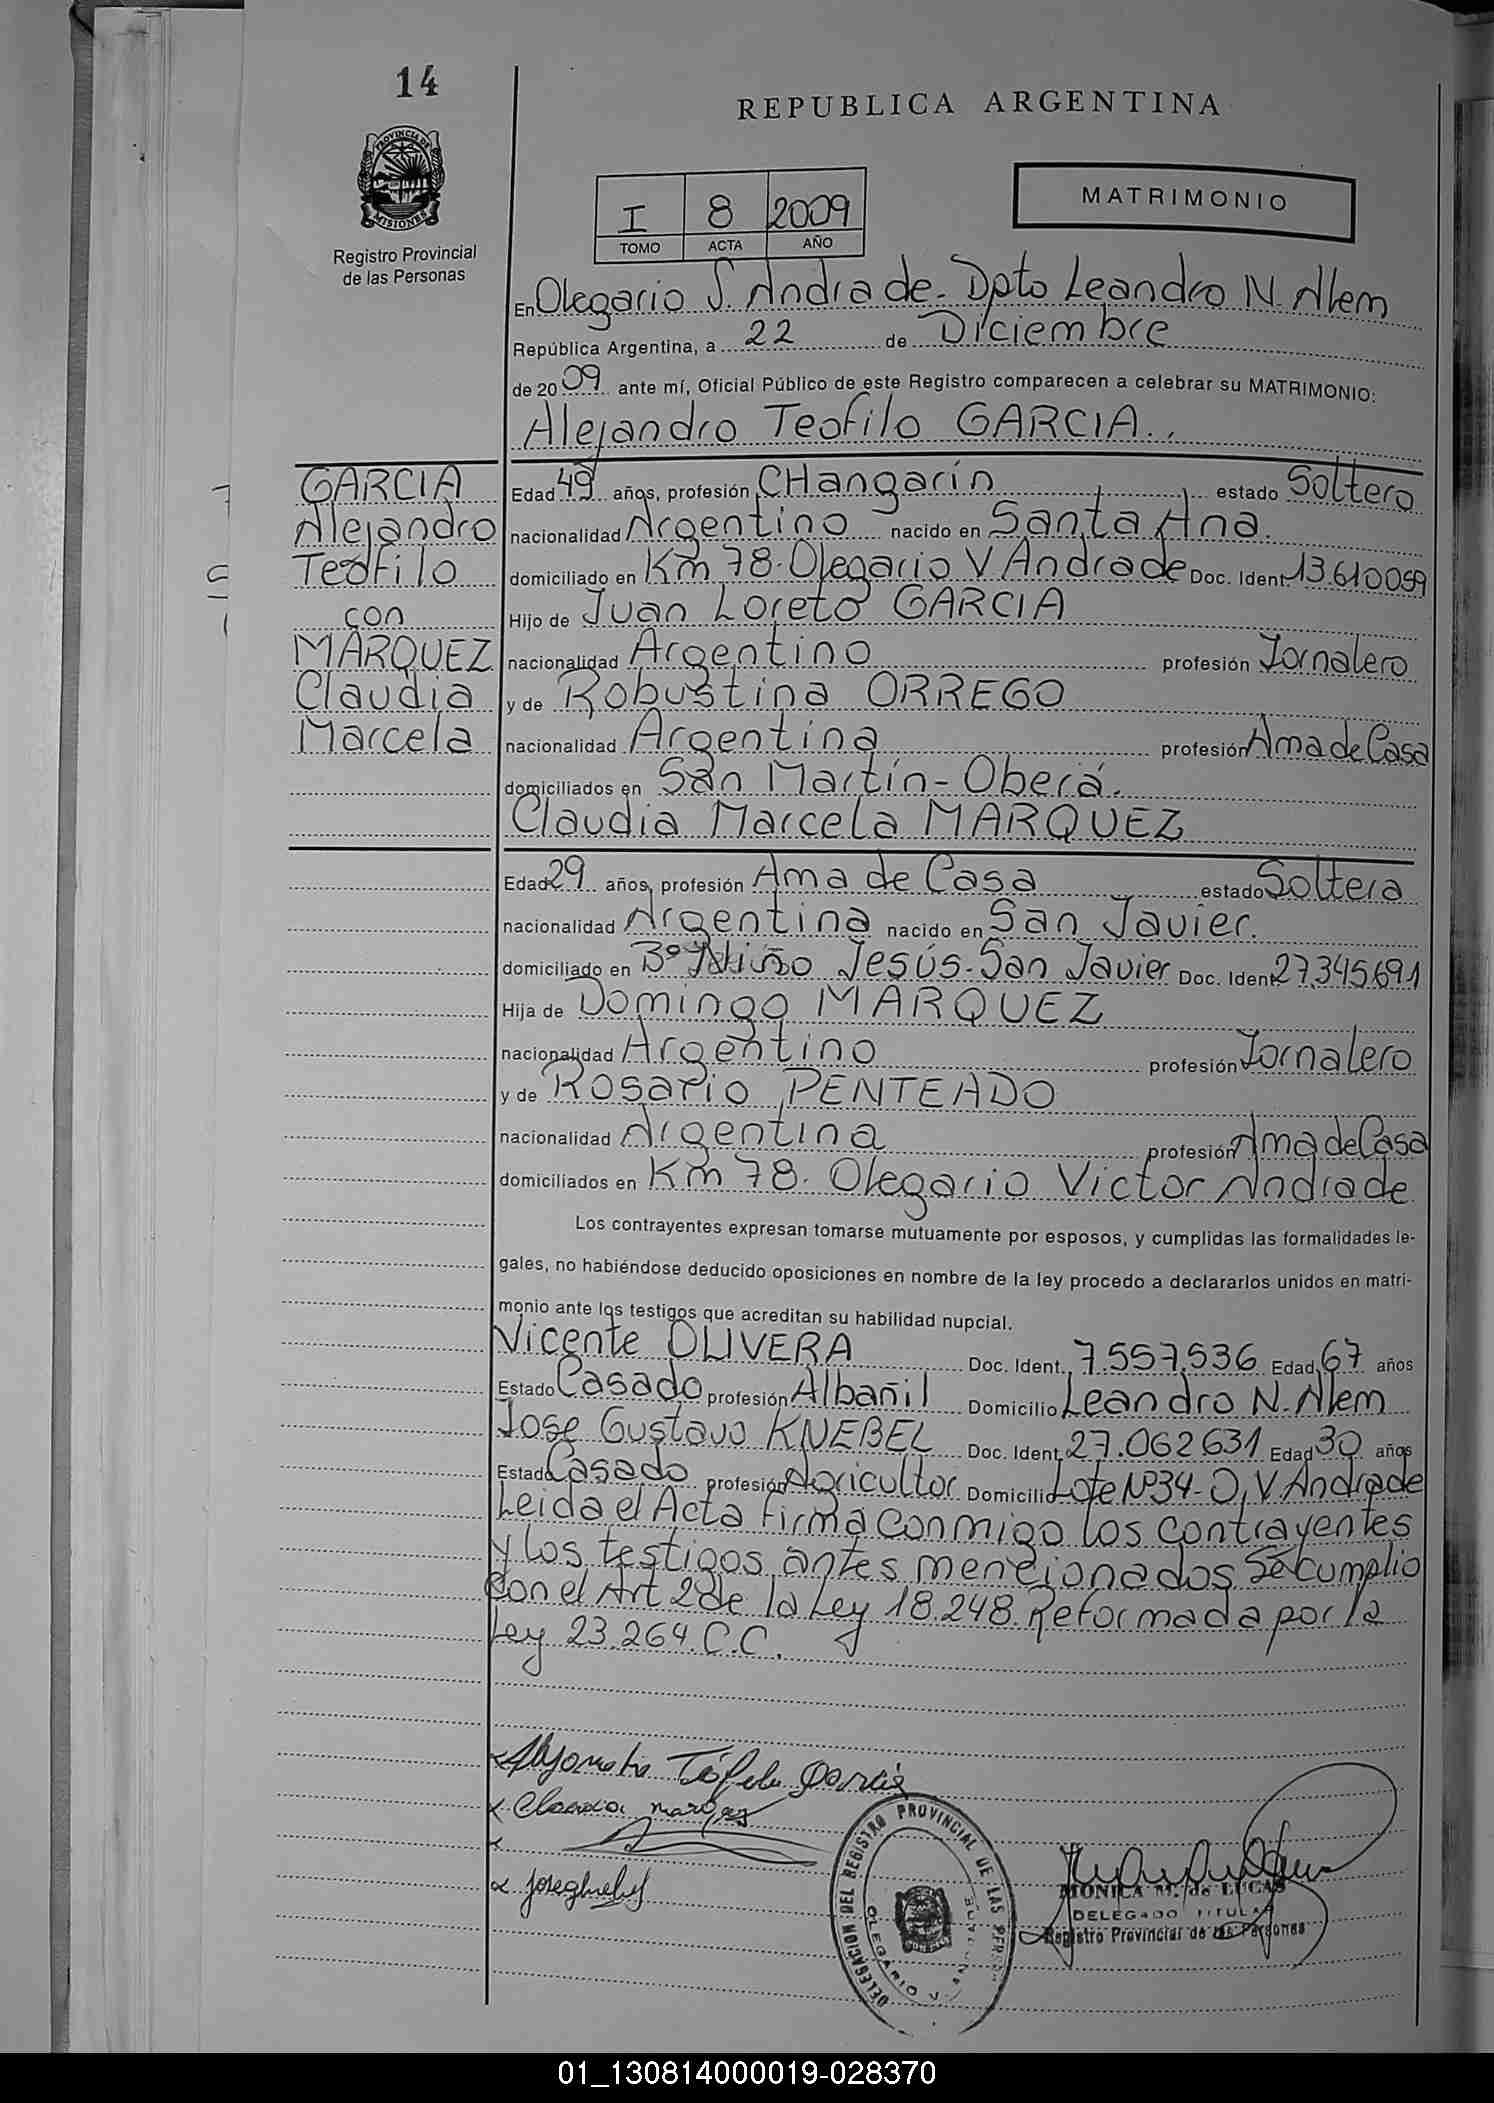 14
REPUBLICA ARGENTINA
PROVINCIA DE
MISIONES
Registro Provincial
de las Personas
I 8 2009
TOMO ACTA AÑO
MATRIMONIO
En Olegario S. Andrade - Dpto Leandro N. Alem
República Argentina, a 22 de Diciembre
de 2009 ante mí, Oficial Público de este Registro comparecen a celebrar su MATRIMONIO:
Alejandro Teofilo GARCIA
GARCIA
Alejandro
Teofilo
con
MARQUEZ
Claudia
Marcela
Edad 49 años, profesión CHangarín estado Soltero
nacionalidad Argentino nacido en Santa Ana.
domiciliado en Km 78. Olegario V Andrade Doc. Ident. 13.610059
Hijo de Juan Loreto GARCIA
nacionalidad Argentino profesión Jornalero
y de Robustina ORREGO
nacionalidad Argentina profesión Ama de Casa
domiciliados en San Martín - Oberá.
Claudia Marcela MARQUEZ
Edad 29 años, profesión Ama de Casa estado Soltera
nacionalidad Argentina nacido en San Javier.
domiciliado en Bº Niño Jesús - San Javier Doc. Ident. 27.345.691
Hija de Domingo MARQUEZ
nacionalidad Argentino profesión Jornalero
y de Rosario PENTEADO
nacionalidad Argentina profesión Ama de Casa
domiciliados en Km 78. Olegario Victor Andrade
Los contrayentes expresan tomarse mutuamente por esposos, y cumplidas las formalidades le-
gales, no habiéndose deducido oposiciones en nombre de la ley procedo a declararlos unidos en matri-
monio ante los testigos que acreditan su habilidad nupcial.
Vicente OLIVERA Doc. Ident. 7.557.536 Edad 67 años
Estado Casado profesión Albañil Domicilio Leandro N. Alem
Jose Gustavo KNEBEL Doc. Ident. 27.062631 Edad 30 años
Estado Casado profesión Agricultor Domicilio Lote Nº34 - O. V Andrade
Leida el Acta firma conmigo los contrayentes
y los testigos antes mencionados Se cumplio
Con el Art 2 de la Ley 18.248. Reformada por la
Ley 23.264. C.C.
Teofilo Garcia
Claudia marquez
DELEGACION DEL REGISTRO PROVINCIAL DE LAS PERSONAS
OLEGARIO V.
MONICA M. de LUCAS
DELEGADO TITULAR
Registro Provincial de las Personas
01_130814000019-028370